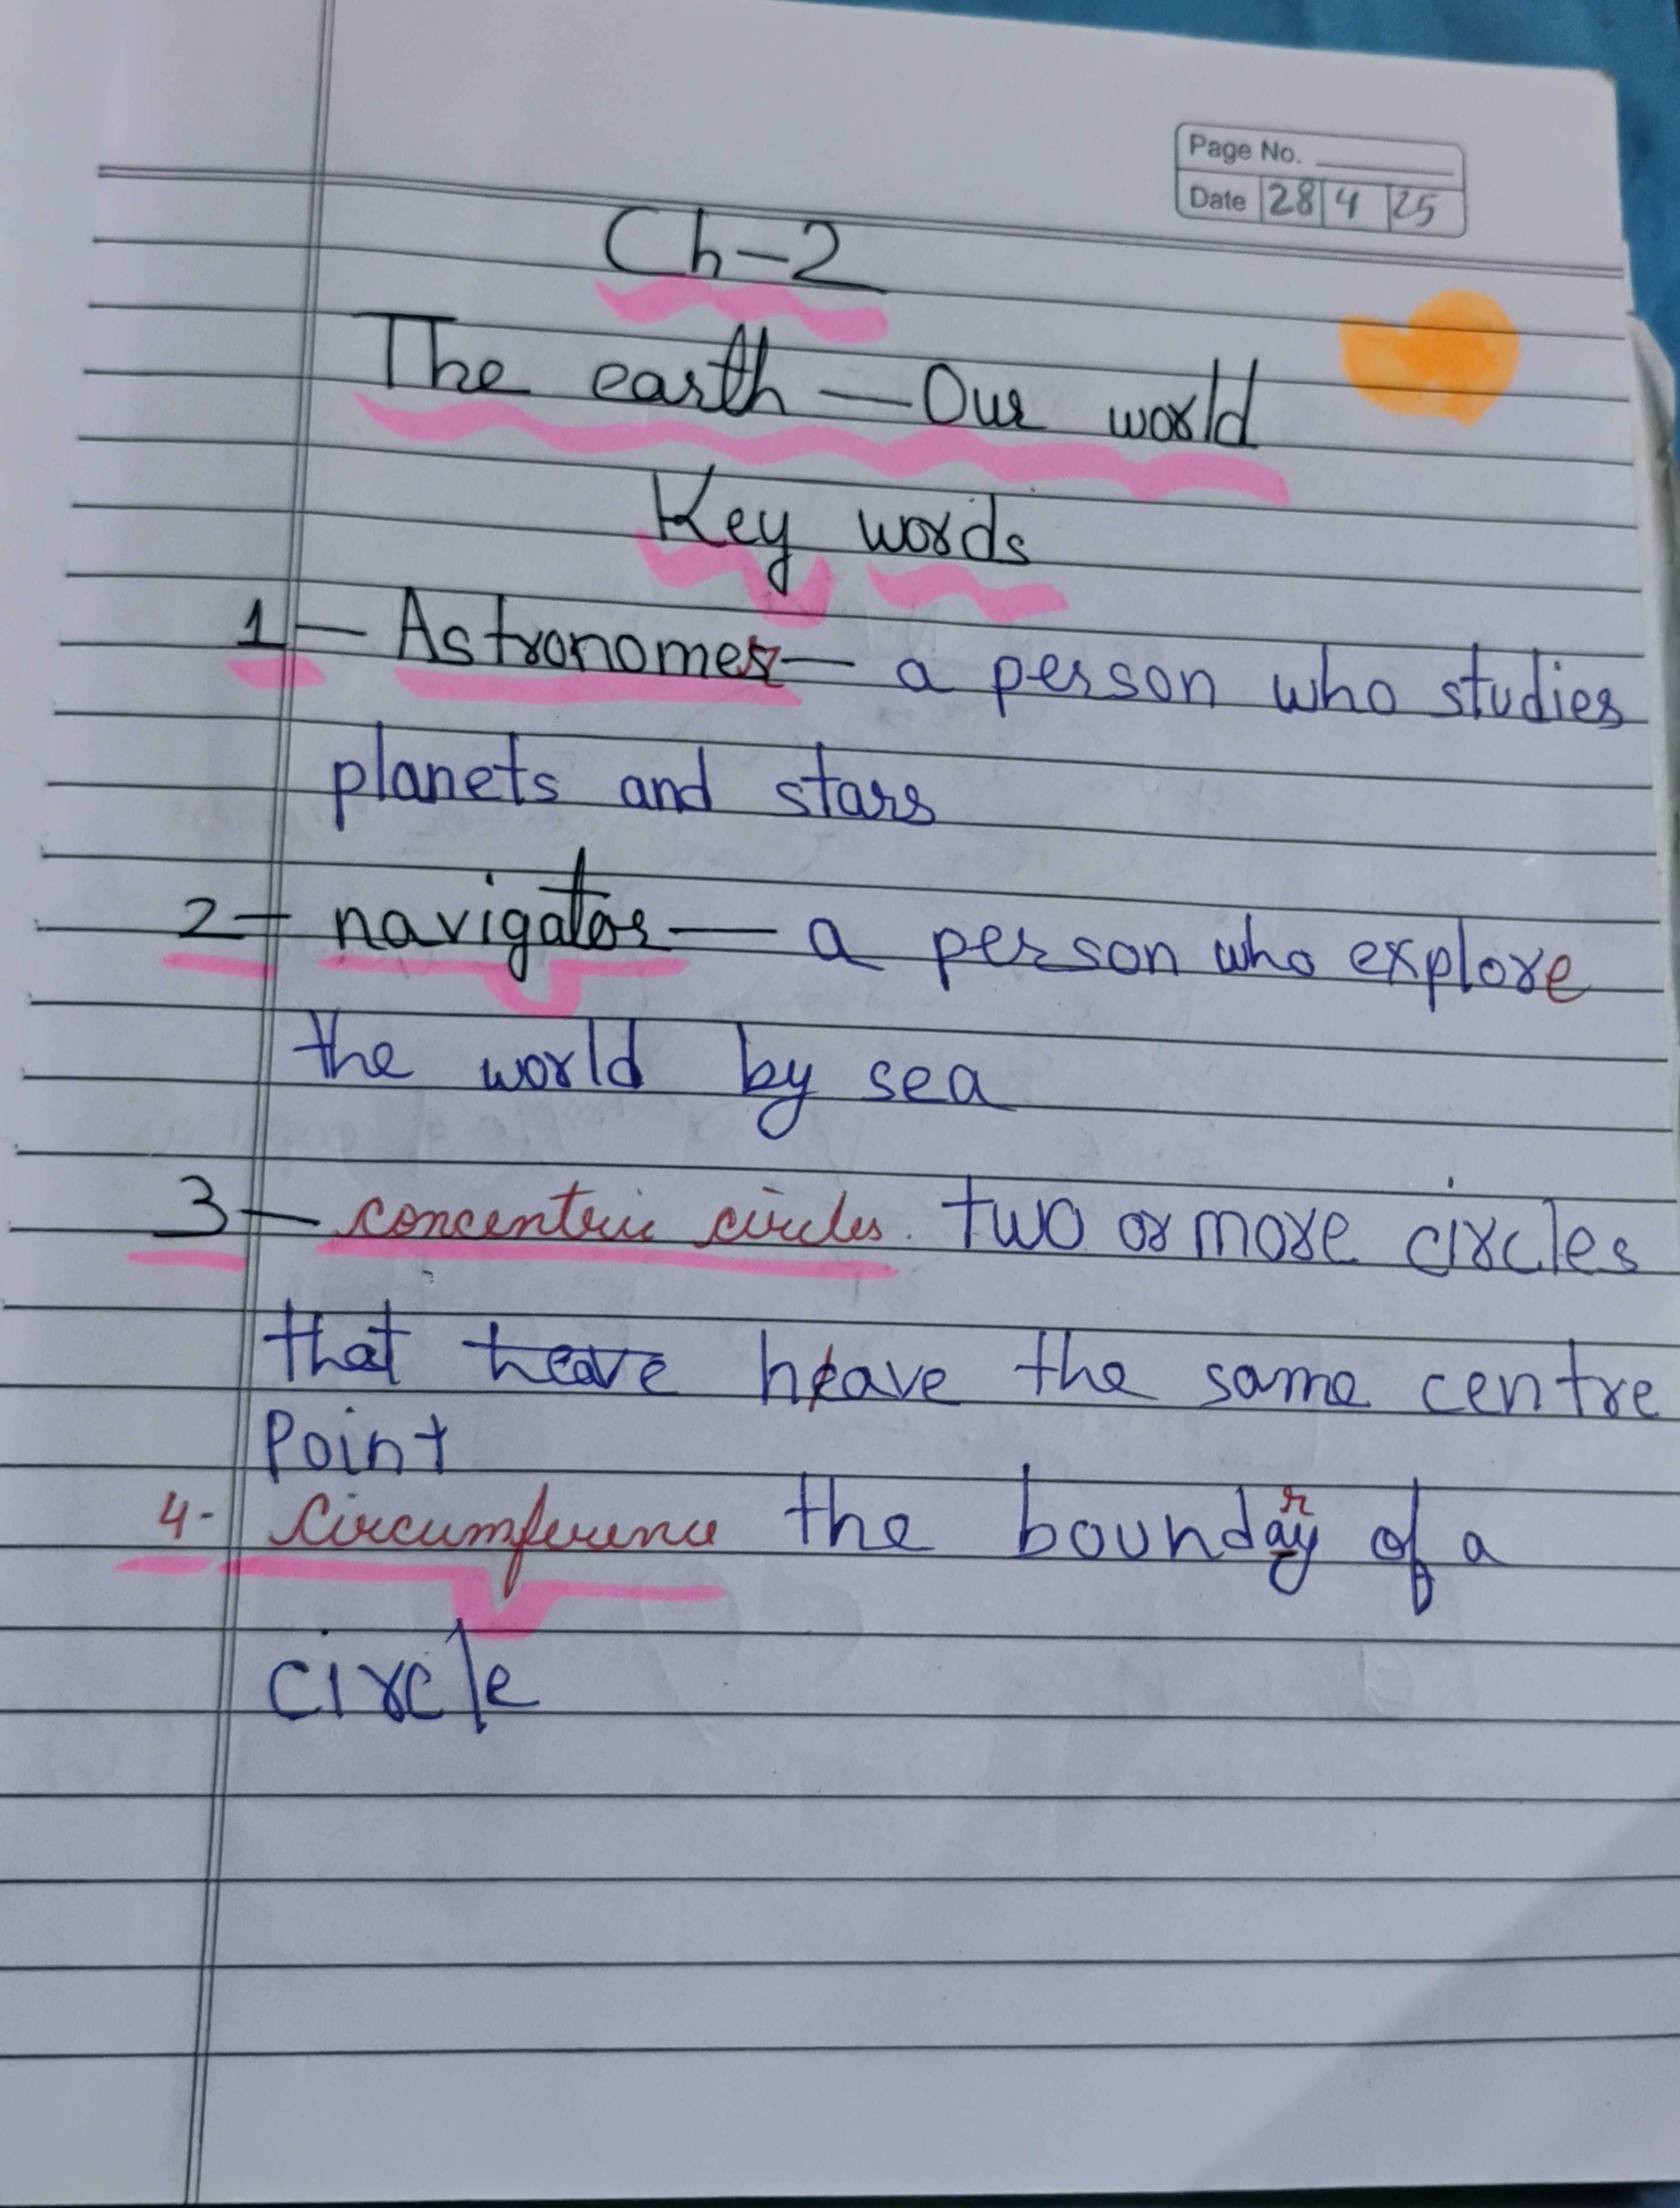 Page No.
Date 28 4 25
Ch-2
The earth — Our world
Key words
1 — Astronomer — a person who studies
planets and stars
2 — navigator — a person who explore
the world by sea
3 — concentric circles. two or more circles
that heave have the same centre
Point
4- Circumference the boundary of a
circle